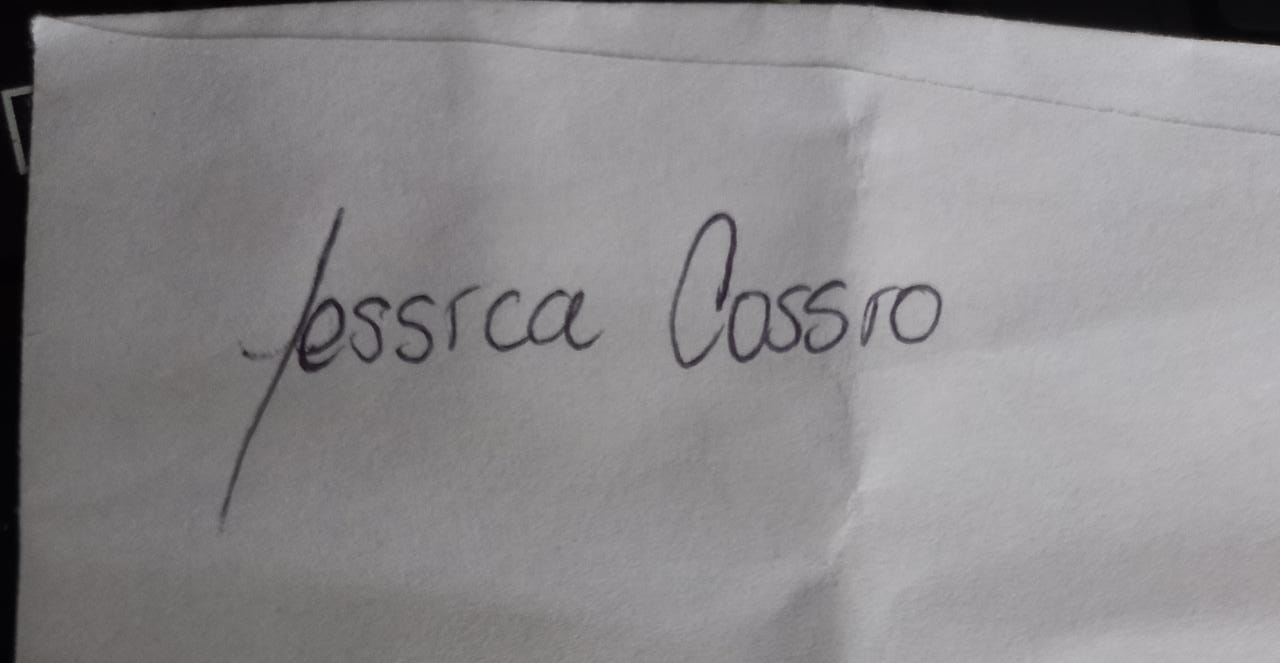 Jessica Cossio